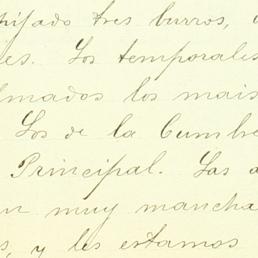 tres burros,
es. Los temporales
los mais
Los de la Cumbre
Principal. Las
muy mancha
s, y les estamos